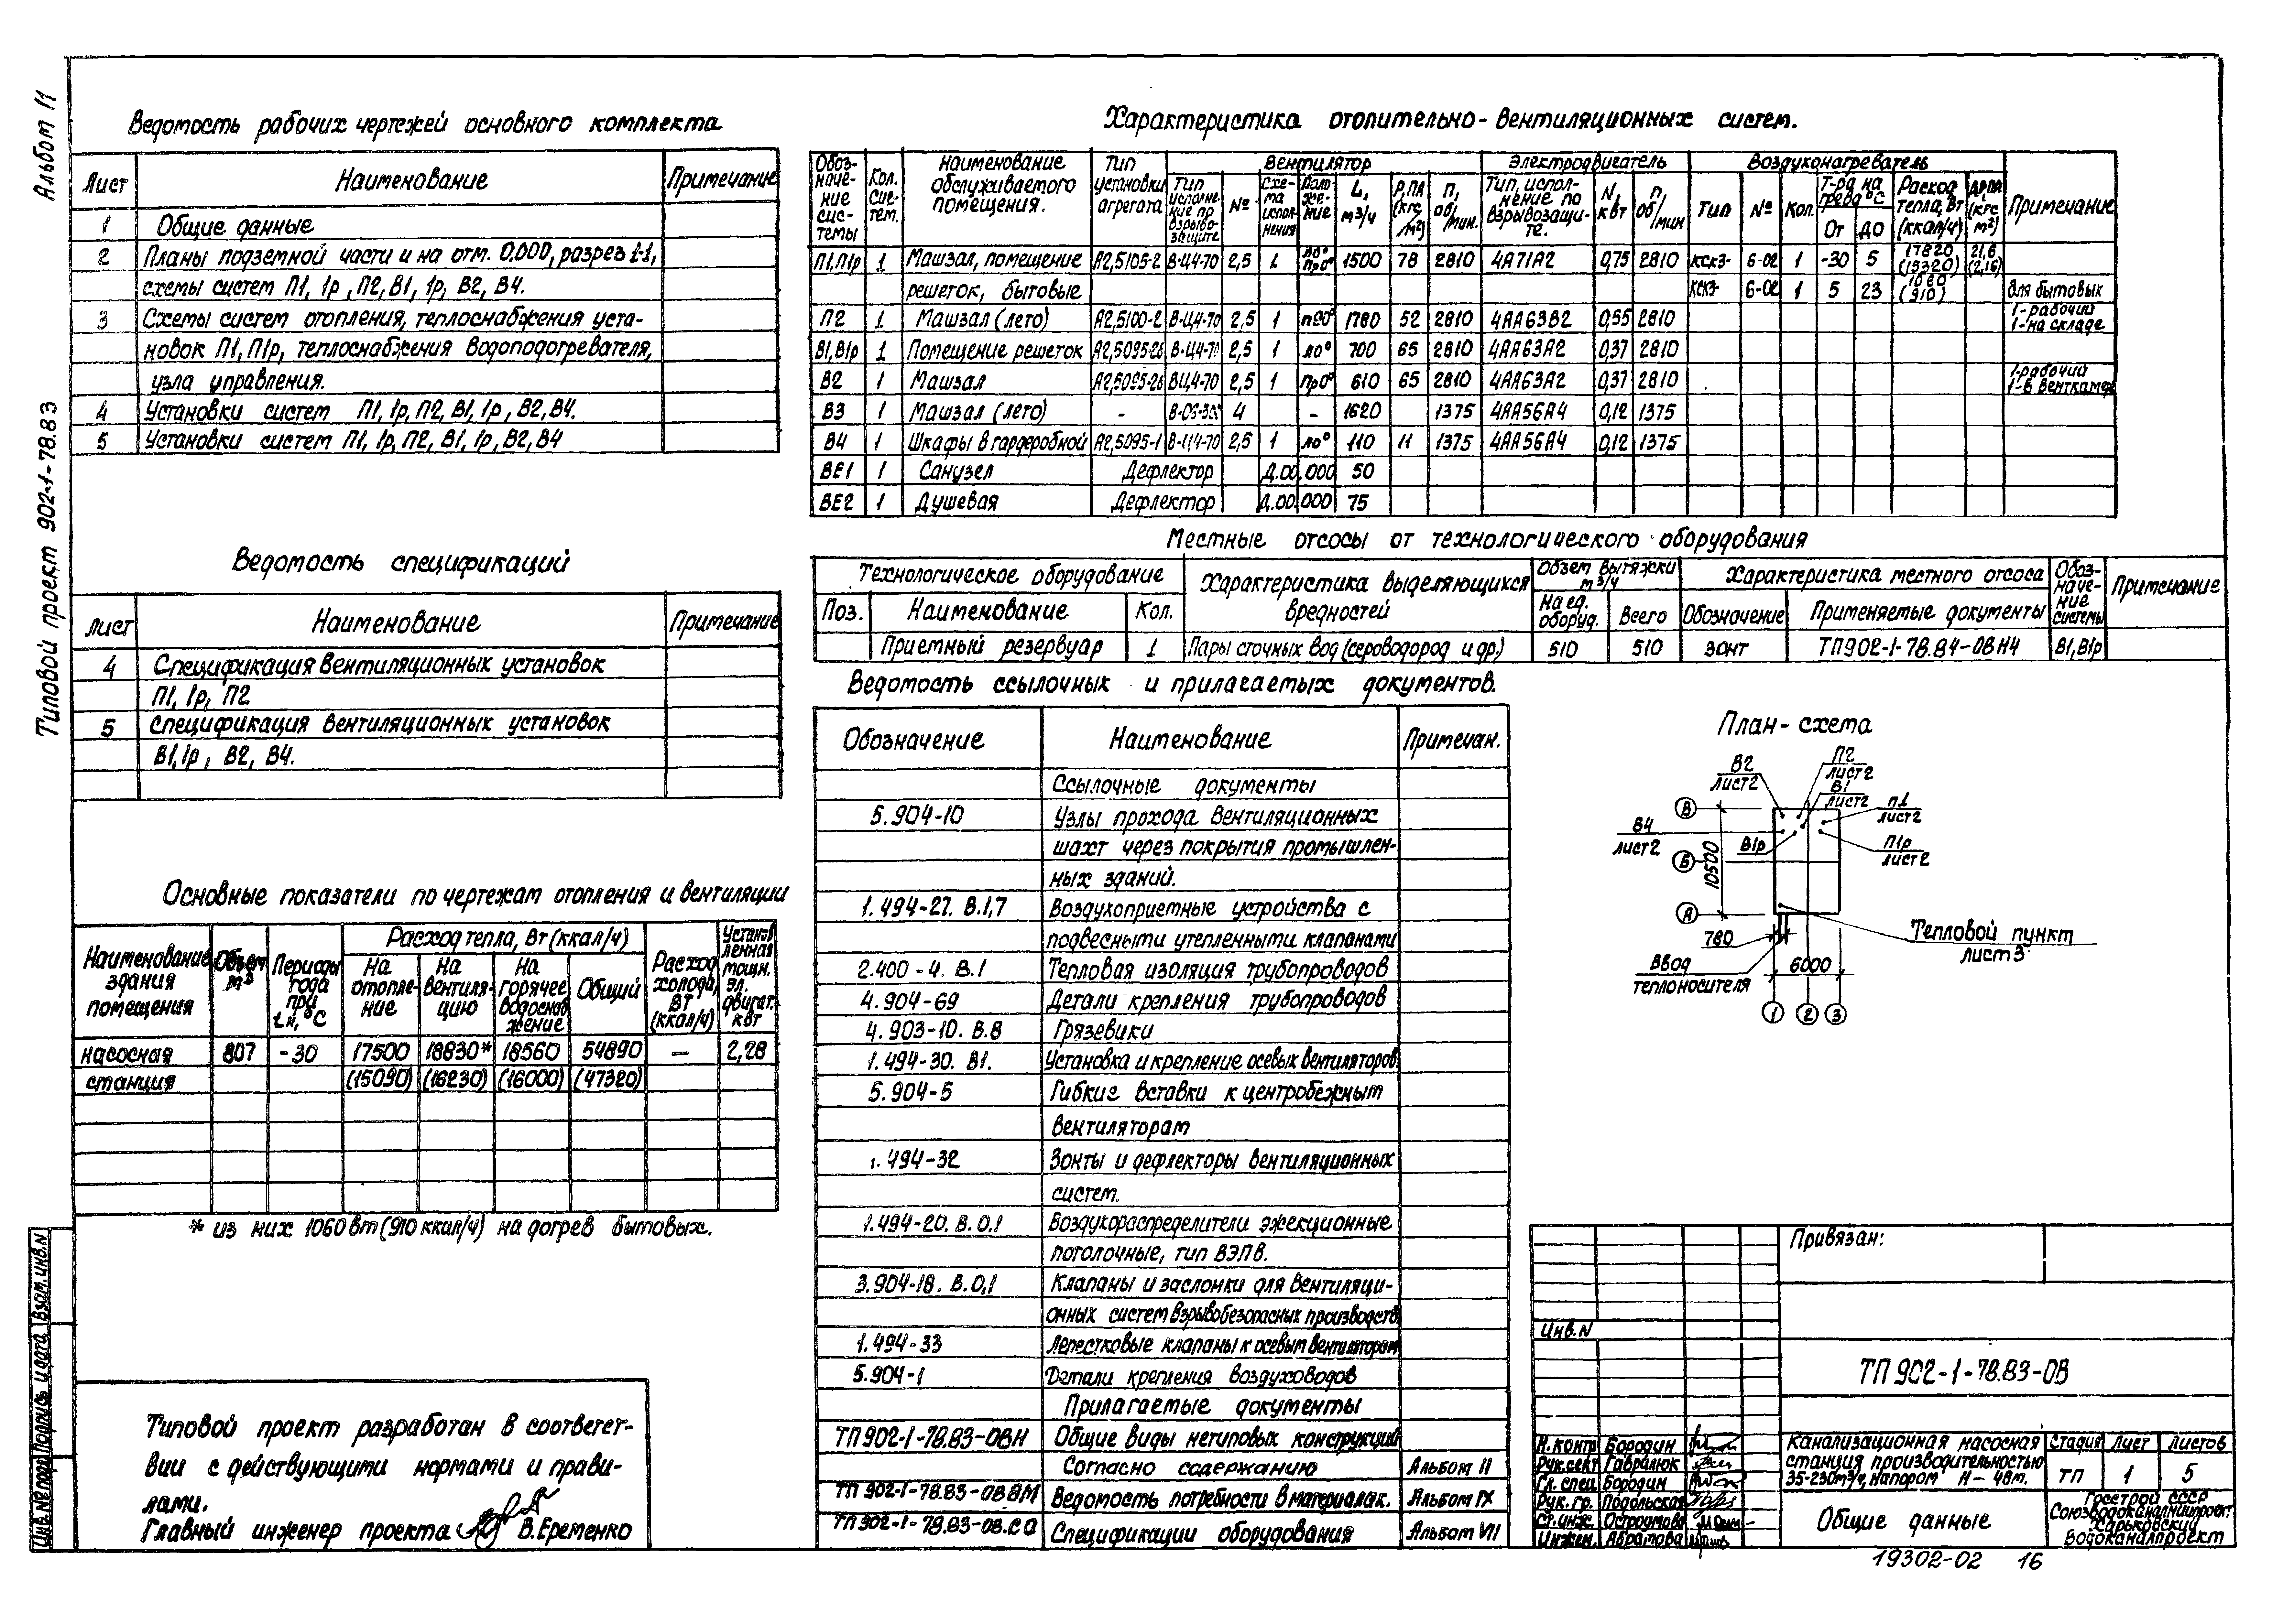 Альбом II
Типовой проект 902-1-78.83
Ведомость рабочих чертежей основного комплекта
Лист Наименование Примечание
1 Общие данные
2 Планы подземной части и на отм. 0.000, разрез 1-1,
схемы систем П1, 1р, П2, В1, 1р, В2, В4.
3 Схемы систем отопления, теплоснабжения уста-
новок П1, П1р, теплоснабжения водоподогревателя,
узла управления.
4 Установки систем П1, 1р, П2, В1, 1р, В2, В4.
5 Установки систем П1, 1р, П2, В1, 1р, В2, В4
Ведомость спецификаций
Лист Наименование Примечание
4 Спецификация вентиляционных установок
П1, 1р, П2
5 Спецификация вентиляционных установок
В1, 1р, В2, В4.
Основные показатели по чертежам отопления и вентиляции
Наименование здания помещения
Объем м³
Периоды года при tн, °С
Расход тепла, Вт (ккал/ч)
На отопле-ние
На вентиля-цию
На горячее водоснаб жение
Общий
Расход холода, Вт (ккал/ч)
Установ ленная мощн. эл. двигат. кВт
насосная 807 -30 17500 18830* 18560 54890 — 2,28
станция (15090) (16230) (16000) (47320)
* из них 1060 вт (910 ккал/ч) на догрев бытовых.
Типовой проект разработан в соответст-
вии с действующими нормами и прави-
лами.
Главный инженер проекта В. Еременко
Инв.№подл Подпись и дата Взам.инв.N
Характеристика отопительно-вентиляционных систем.
Обоз-наче-ние сис-темы
Кол. сис-тем.
Наименование обслуживаемого помещения.
Тип установки агрегата
Вентилятор
Тип исполне-ние по взрыво-защите
№
Схе-ма испол-нения
Поло-же-ние
L, м³/ч
Р, ПА (кгс/м²)
п, об/мин.
Электродвигатель
Тип, испол-нение по взрывозащи-те.
N, квт
п, об/мин
Воздухонагреватель
Тип
№
Кол.
Т-ра нагрева °С
От до
Расход тепла, Вт (ккал/ч)
ΔР, ПА (кгс м²)
Примечание
П1, П1р 1 Машзал, помещение А2,5105-2 В-Ц4-70 2,5 1 Л0° Пр0° 1500 78 2810 4А71А2 0,75 2810 КСК3- 6-02 1 -30 5 17820 (15320) 21,6 (2,16)
решеток, бытовые КСК3- 6-02 1 5 23 1060 (910) для бытовых
П2 1 Машзал (лето) А2,5100-2 В-Ц4-70 2,5 1 п90° 1780 52 2810 4АА63В2 0,55 2810 1-рабочий 1-на складе
В1, В1р 1 Помещение решеток А2,5095-2б В-Ц4-70 2,5 1 Л0° 700 65 2810 4АА63А2 0,37 2810
В2 1 Машзал А2,5095-2б ВЦ4-70 2,5 1 Пр0° 610 65 2810 4АА63А2 0,37 2810 1-рабочий 1-в венткамер
В3 1 Машзал (лето) - В-06-300 4 - 1620 1375 4АА56А4 0,12 1375
В4 1 Шкафы в гардеробной А2,5095-1 В-Ц4-70 2,5 1 Л0° 110 11 1375 4АА56А4 0,12 1375
ВЕ1 1 Санузел Дефлектор Д.00.000 50
ВЕ2 1 Душевая Дефлектор Д.00.000 75
Местные отсосы от технологического оборудования
Технологическое оборудование
Поз. Наименование Кол.
Характеристика выделяющихся вредностей
Объем вытяжки м³/ч
На ед. оборуд. Всего
Характеристика местного отсоса
Обозначение Применяемые документы
Обоз-наче-ние системы
Примечание
Приемный резервуар 1 Пары сточных вод (сероводород и др.) 510 510 зонт ТП902-1-78.84-ОВН4 В1, В1р
Ведомость ссылочных и прилагаемых документов.
Обозначение Наименование Примечан.
Ссылочные документы
5.904-10 Узлы прохода вентиляционных
шахт через покрытия промышлен-
ных зданий.
1.494-27. В.1,7 Воздухоприемные устройства с
подвесными утепленными клапанами
2.400-4. В.1 Тепловая изоляция трубопроводов
4.904-69 Детали крепления трубопроводов
4.903-10. В.8 Грязевики
1.494-30. В1. Установка и крепление осевых вентиляторов.
5.904-5 Гибкие вставки к центробежным
вентиляторам
1.494-32 Зонты и дефлекторы вентиляционных
систем.
1.494-20. В.0,1 Воздухораспределители эжекционные
потолочные, тип ВЭПВ.
3.904-18. В.0,1 Клапаны и заслонки для вентиляци-
онных систем взрывобезопасных производств
1.494-33 Лепестковые клапаны к осевым вентиляторам
5.904-1 Детали крепления воздуховодов
Прилагаемые документы
ТП902-1-78.83-ОВН Общие виды нетиповых конструкций
Согласно содержанию Альбом II
ТП 902-1-78.83-ОВВМ Ведомость потребности в материалах. Альбом IX
ТП902-1-78.83-ОВ.СО Спецификации оборудования Альбом VII
План-схема
В2 лист2
П2 лист2
В1 лист2
П1 лист2
В4 лист2
В1р
П1р лист2
В
Б
А
10500
780
6000
Тепловой пункт
лист 3
Ввод
теплоносителя
1 2 3
Привязан:
Инв.N
ТП 902-1-78.83-ОВ
Н.контр Бородин
Рук.сект Гаврилюк
Гл.спец Бородин
Рук.гр. Подольская
Ст.инж. Остроумова
Инжен. Абрамова
Канализационная насосная
станция производительностью
35-230м³/ч, напором Н-48м.
Стадия Лист Листов
ТП 1 5
Общие данные
Госстрой СССР
Союзводоканалниипроект
Харьковский
Водоканалпроект
19302-02 16